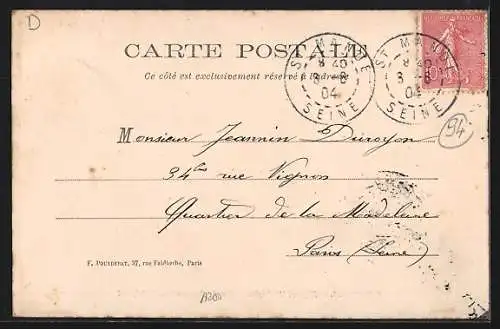 D
CARTE POSTALE
Ce côté est exclusivement réservé à l'adresse
ST MANDE
8 40
8 - 8
04
SEINE
ST MANDE
8 40
8 - 8
04
SEINE
94
Monsieur Jeannin Duroyon
34bis rue Vignon
Quartier de la Madeleine
Paris (Seine)
F. POUYDEBAT, 37, rue Faidherbe, Paris